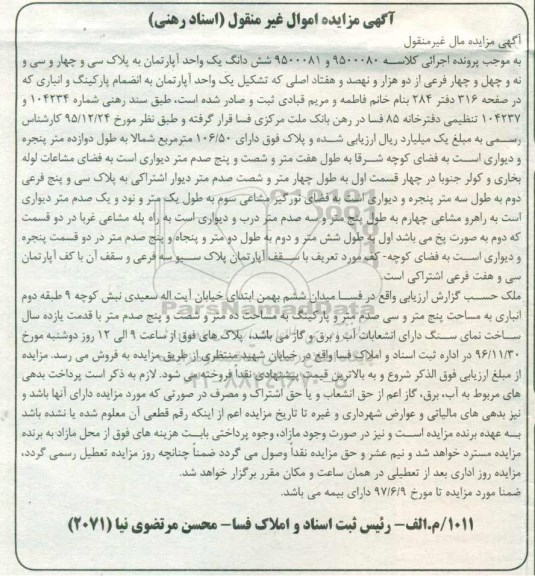 آگهی مزایده اموال غیر منقول (اسناد رهنی)
آگهی مزایده مال غیرمنقول
به موجب پرونده اجرائی کلاسه ۹۵۰۰۰۸۰ و ۹۵۰۰۰۸۱ شش دانگ یک واحد آپارتمان به پلاک سی و چهار و سی و
نه و چهل و چهار فرعی از دو هزار و نهصد و هفتاد اصلی که تشکیل یک واحد آپارتمان به انضمام پارکینگ و انباری که
در صفحه ۳۱۶ دفتر ۲۸۴ بنام خانم فاطمه و مریم قبادی ثبت و صادر شده است، طبق سند رهنی شماره ۱۰۴۲۳۴ و
۱۰۴۲۳۷ تنظیمی دفترخانه ۸۵ فسا در رهن بانک ملت مرکزی فسا قرار گرفته و طبق نظر مورخ ۹۵/۱۲/۲۴ کارشناس
رسمی به مبلغ یک میلیارد ریال ارزیابی شده و پلاک فوق دارای ۱۰۶/۵۰ مترمربع شمالا به طول دوازده متر پنجره
و دیواری است به فضای کوچه شرقا به طول هفت متر و شصت و پنج صدم متر دیواری است به فضای مشاعات لوله
بخاری و کولر جنوبا در چهار قسمت اول به طول چهار متر و شصت صدم متر دیوار اشتراکی به پلاک سی و پنج فرعی
دوم به طول سه متر پنجره و دیواری است به فضای نورگیر مشاعی سوم به طول یک متر و نود و یک صدم متر دیواری
است به راهرو مشاعی چهارم به طول پنج متر و سه صدم متر درب و دیواری است به راه پله مشاعی غربا در دو قسمت
که دوم به صورت پخ می باشد اول به طول شش متر و دوم به طول دو متر و پنجاه و پنج صدم متر در دو قسمت پنجره
و دیواری است به فضای کوچه- کف مورد تعریف با سقف آپارتمان پلاک سیو سه فرعی و سقف آن با کف آپارتمان
سی و هفت فرعی اشتراکی است.
ملک حسب گزارش ارزیابی واقع در فسا میدان ششم بهمن ابتدای خیابان آیت اله سعیدی نبش کوچه ۹ طبقه دوم
انباری به مساحت پنج متر و سی صدم متر و پارکینگ به مساحت ده متر و شصت و پنج صدم متر با قدمت یازده سال
ساخت نمای سنگ دارای انشعابات آب و برق و گاز می باشد، پلاک های فوق از ساعت ۹ الی ۱۲ روز دوشنبه مورخ
۹۶/۱۱/۳۰ در اداره ثبت اسناد و املاک فسا واقع در خیابان شهید منتظری از طریق مزایده به فروش می رسد. مزایده
از مبلغ ارزیابی فوق الذکر شروع و به بالاترین قیمت پیشنهادی نقدا فروخته می شود. لازم به ذکر است پرداخت بدهی
های مربوط به آب، برق، گاز اعم از حق انشعاب و یا حق اشتراک و مصرف در صورتی که مورد مزایده دارای آنها باشد و
نیز بدهی های مالیاتی و عوارض شهرداری و غیره تا تاریخ مزایده اعم از اینکه رقم قطعی آن معلوم شده یا نشده باشد
به عهده برنده مزایده است و نیز در صورت وجود مازاد، وجوه پرداختی بابت هزینه های فوق از محل مازاد به برنده
مزایده مسترد خواهد شد و نیم عشر و حق مزایده نقداً وصول می گردد ضمناً چنانچه روز مزایده تعطیل رسمی گردد،
مزایده روز اداری بعد از تعطیلی در همان ساعت و مکان مقرر برگزار خواهد شد.
ضمنا مورد مزایده تا مورخ ۹۷/۶/۹ دارای بیمه می باشد.
۱۰۱۱/م.الف- رئیس ثبت اسناد و املاک فسا- محسن مرتضوی نیا (۲۰۷۱)
ParsNamadData